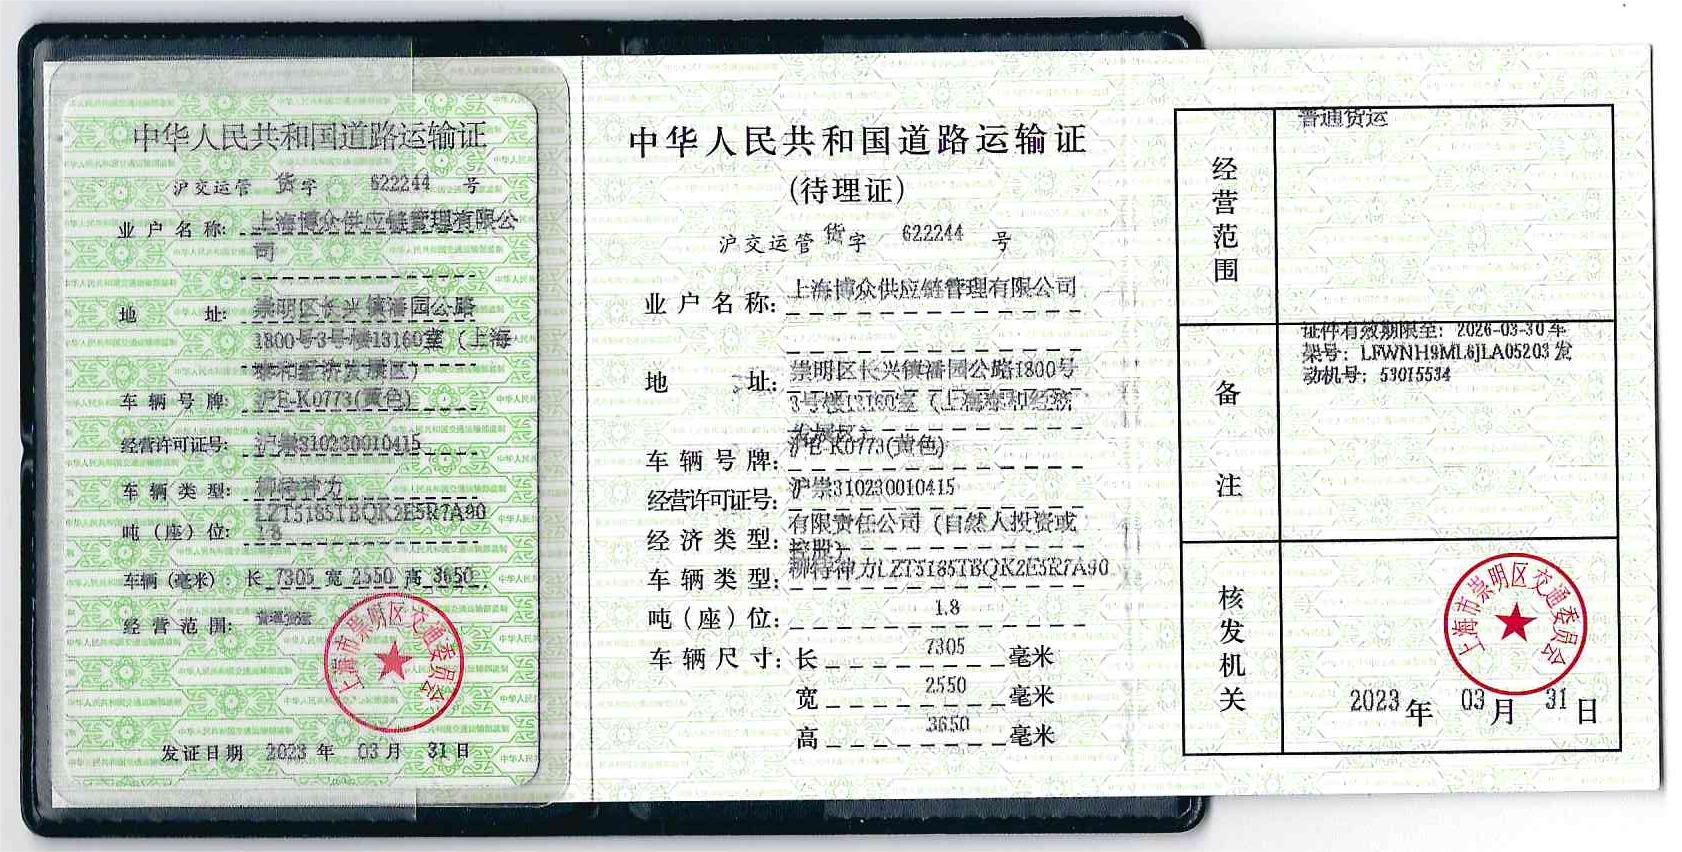 中华人民共和国道路运输证
沪交运管 货字 622244 号
业户名称: 上海博众供应链管理有限公
司
地 址: 崇明区长兴镇潘园公路
1800号3号楼13160室（上海
泰和经济发展区）
车辆号牌: 沪E-K0773(黄色)
经营许可证号: 沪崇310230010415
车辆类型: 柳特神力
LZT5185TBQK2E5R7A90
吨（座）位: 1.8
车辆(毫米): 长 7305 宽 2550 高 3650
经营范围: 普通货运
上海市崇明区交通委员会
发证日期 2023 年 03 月 31 日
中华人民共和国道路运输证
(待理证)
沪交运管 货字 622244 号
业户名称: 上海博众供应链管理有限公司
地 址: 崇明区长兴镇潘园公路1800号
3号楼13160室（上海泰和经济
发展区）
车辆号牌: 沪E-K0773(黄色)
经营许可证号: 沪崇310230010415
经济类型: 有限责任公司（自然人投资或
控股）
车辆类型: 柳特神力LZT5185TBQK2E5R7A90
吨（座）位: 1.8
车辆尺寸: 长 7305 毫米
宽 2550 毫米
高 3650 毫米
经营范围 普通货运
备注 证件有效期限至: 2026-03-30 车
架号: LFWNH9ML6JLA05203 发
动机号: 53015534
核发机关 上海市崇明区交通委员会
2023 年 03 月 31 日